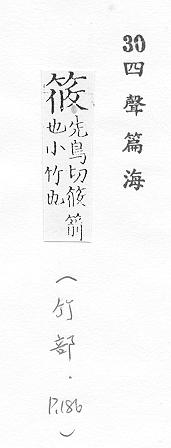 30四聲篇海
筱
先鳥切筱箭
也小竹也
(竹部・P.186)